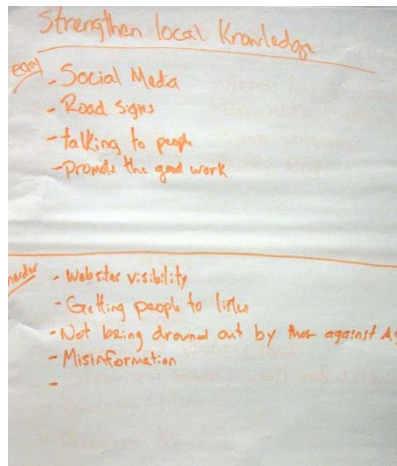 Strengthen local Knowledge
easy
- Social Media
- Road Signs
- talking to people
- promote the good work
harder
- Websites visibility
- Getting people to listen
- Not being drowned out by those against Ag
- Misinformation
-